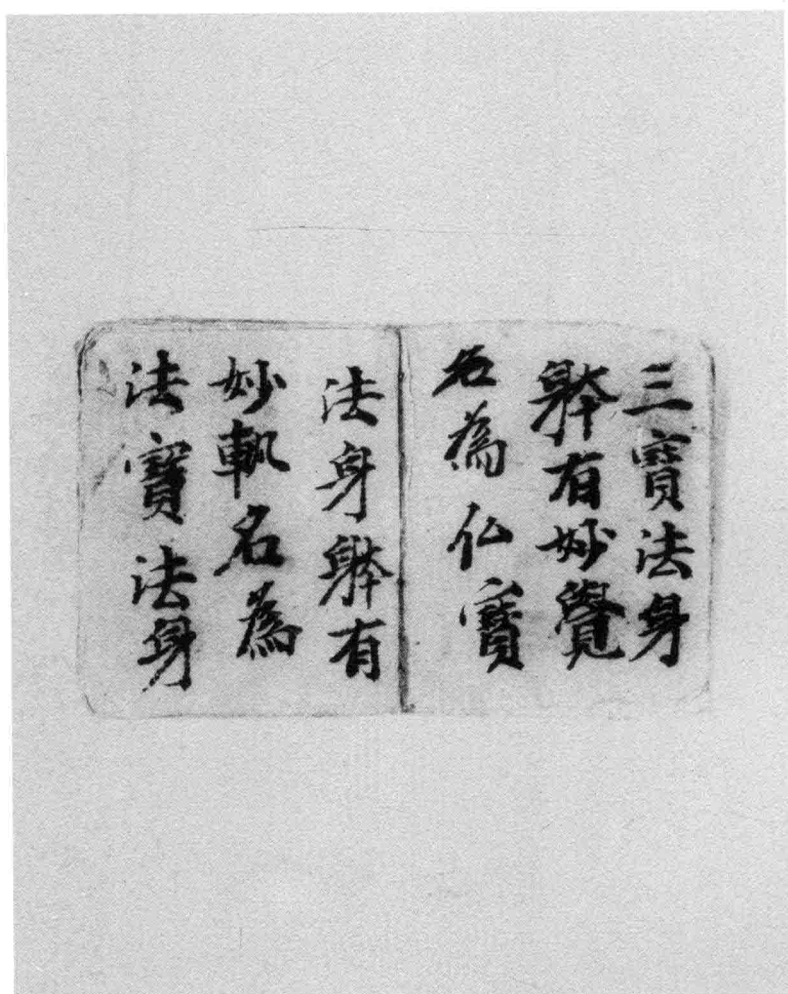 三寳法身
躰有妙覺
名為仏寳
法身躰有
妙軌名為
法寳法身